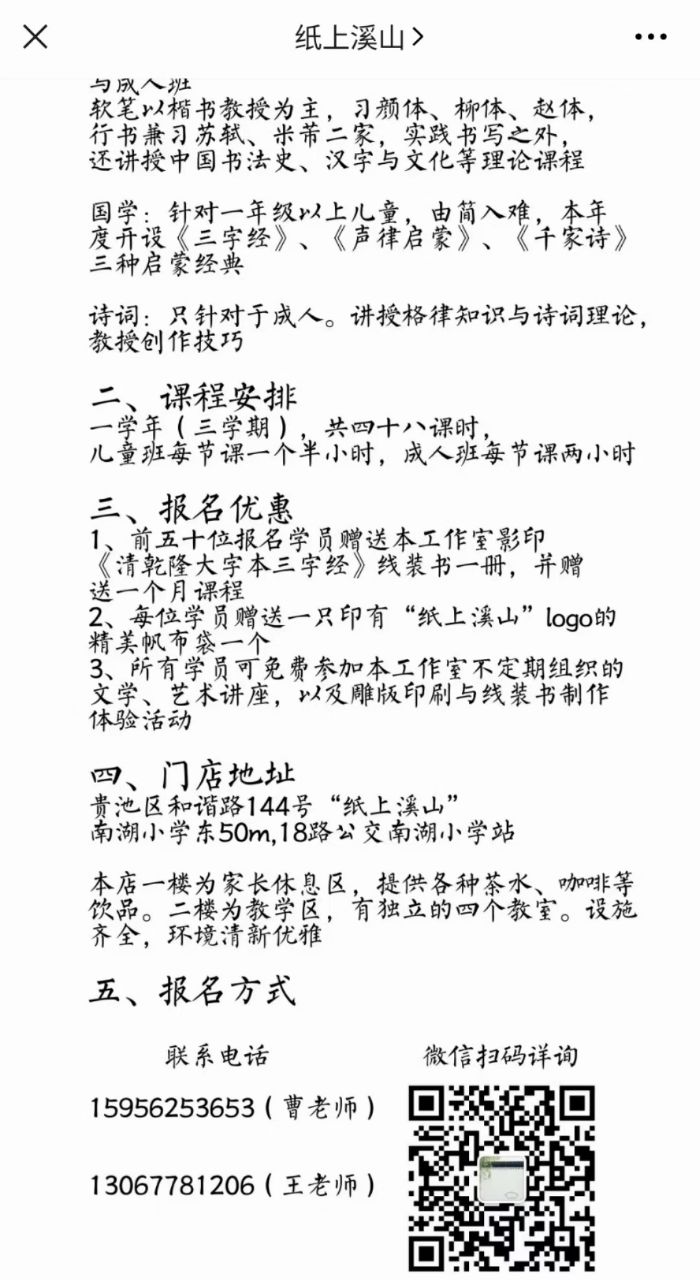 纸上溪山
与成人班
软笔以楷书教授为主，习颜体、柳体、赵体，
行书兼习苏轼、米芾二家，实践书写之外，
还讲授中国书法史、汉字与文化等理论课程
国学：针对一年级以上儿童，由简入难，本年
度开设《三字经》、《声律启蒙》、《千家诗》
三种启蒙经典
诗词：只针对于成人。讲授格律知识与诗词理论，
教授创作技巧
二、课程安排
一学年（三学期），共四十八课时，
儿童班每节课一个半小时，成人班每节课两小时
三、报名优惠
1、前五十位报名学员赠送本工作室影印
《清乾隆大字本三字经》线装书一册，并赠
送一个月课程
2、每位学员赠送一只印有“纸上溪山”logo的
精美帆布袋一个
3、所有学员可免费参加本工作室不定期组织的
文学、艺术讲座，以及雕版印刷与线装书制作
体验活动
四、门店地址
贵池区和谐路144号“纸上溪山”
南湖小学东50m,18路公交南湖小学站
本店一楼为家长休息区，提供各种茶水、咖啡等
饮品。二楼为教学区，有独立的四个教室。设施
齐全，环境清新优雅
五、报名方式
联系电话
微信扫码详询
15956253653（曹老师）
13067781206（王老师）